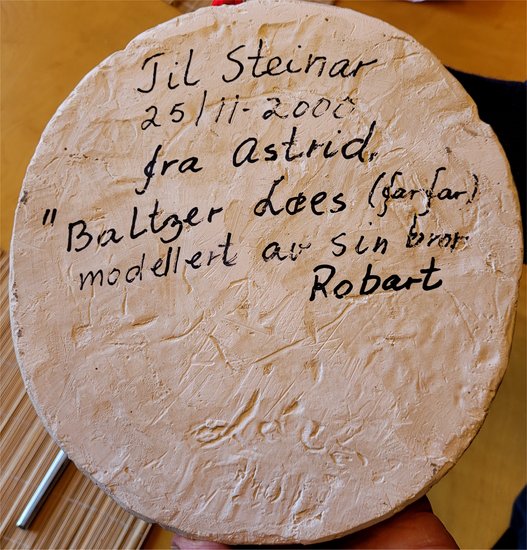 Til Steinar
25/11-2000
fra Astrid.
"Baltzer Loes (farfar)
modellert av sin bror
Robart